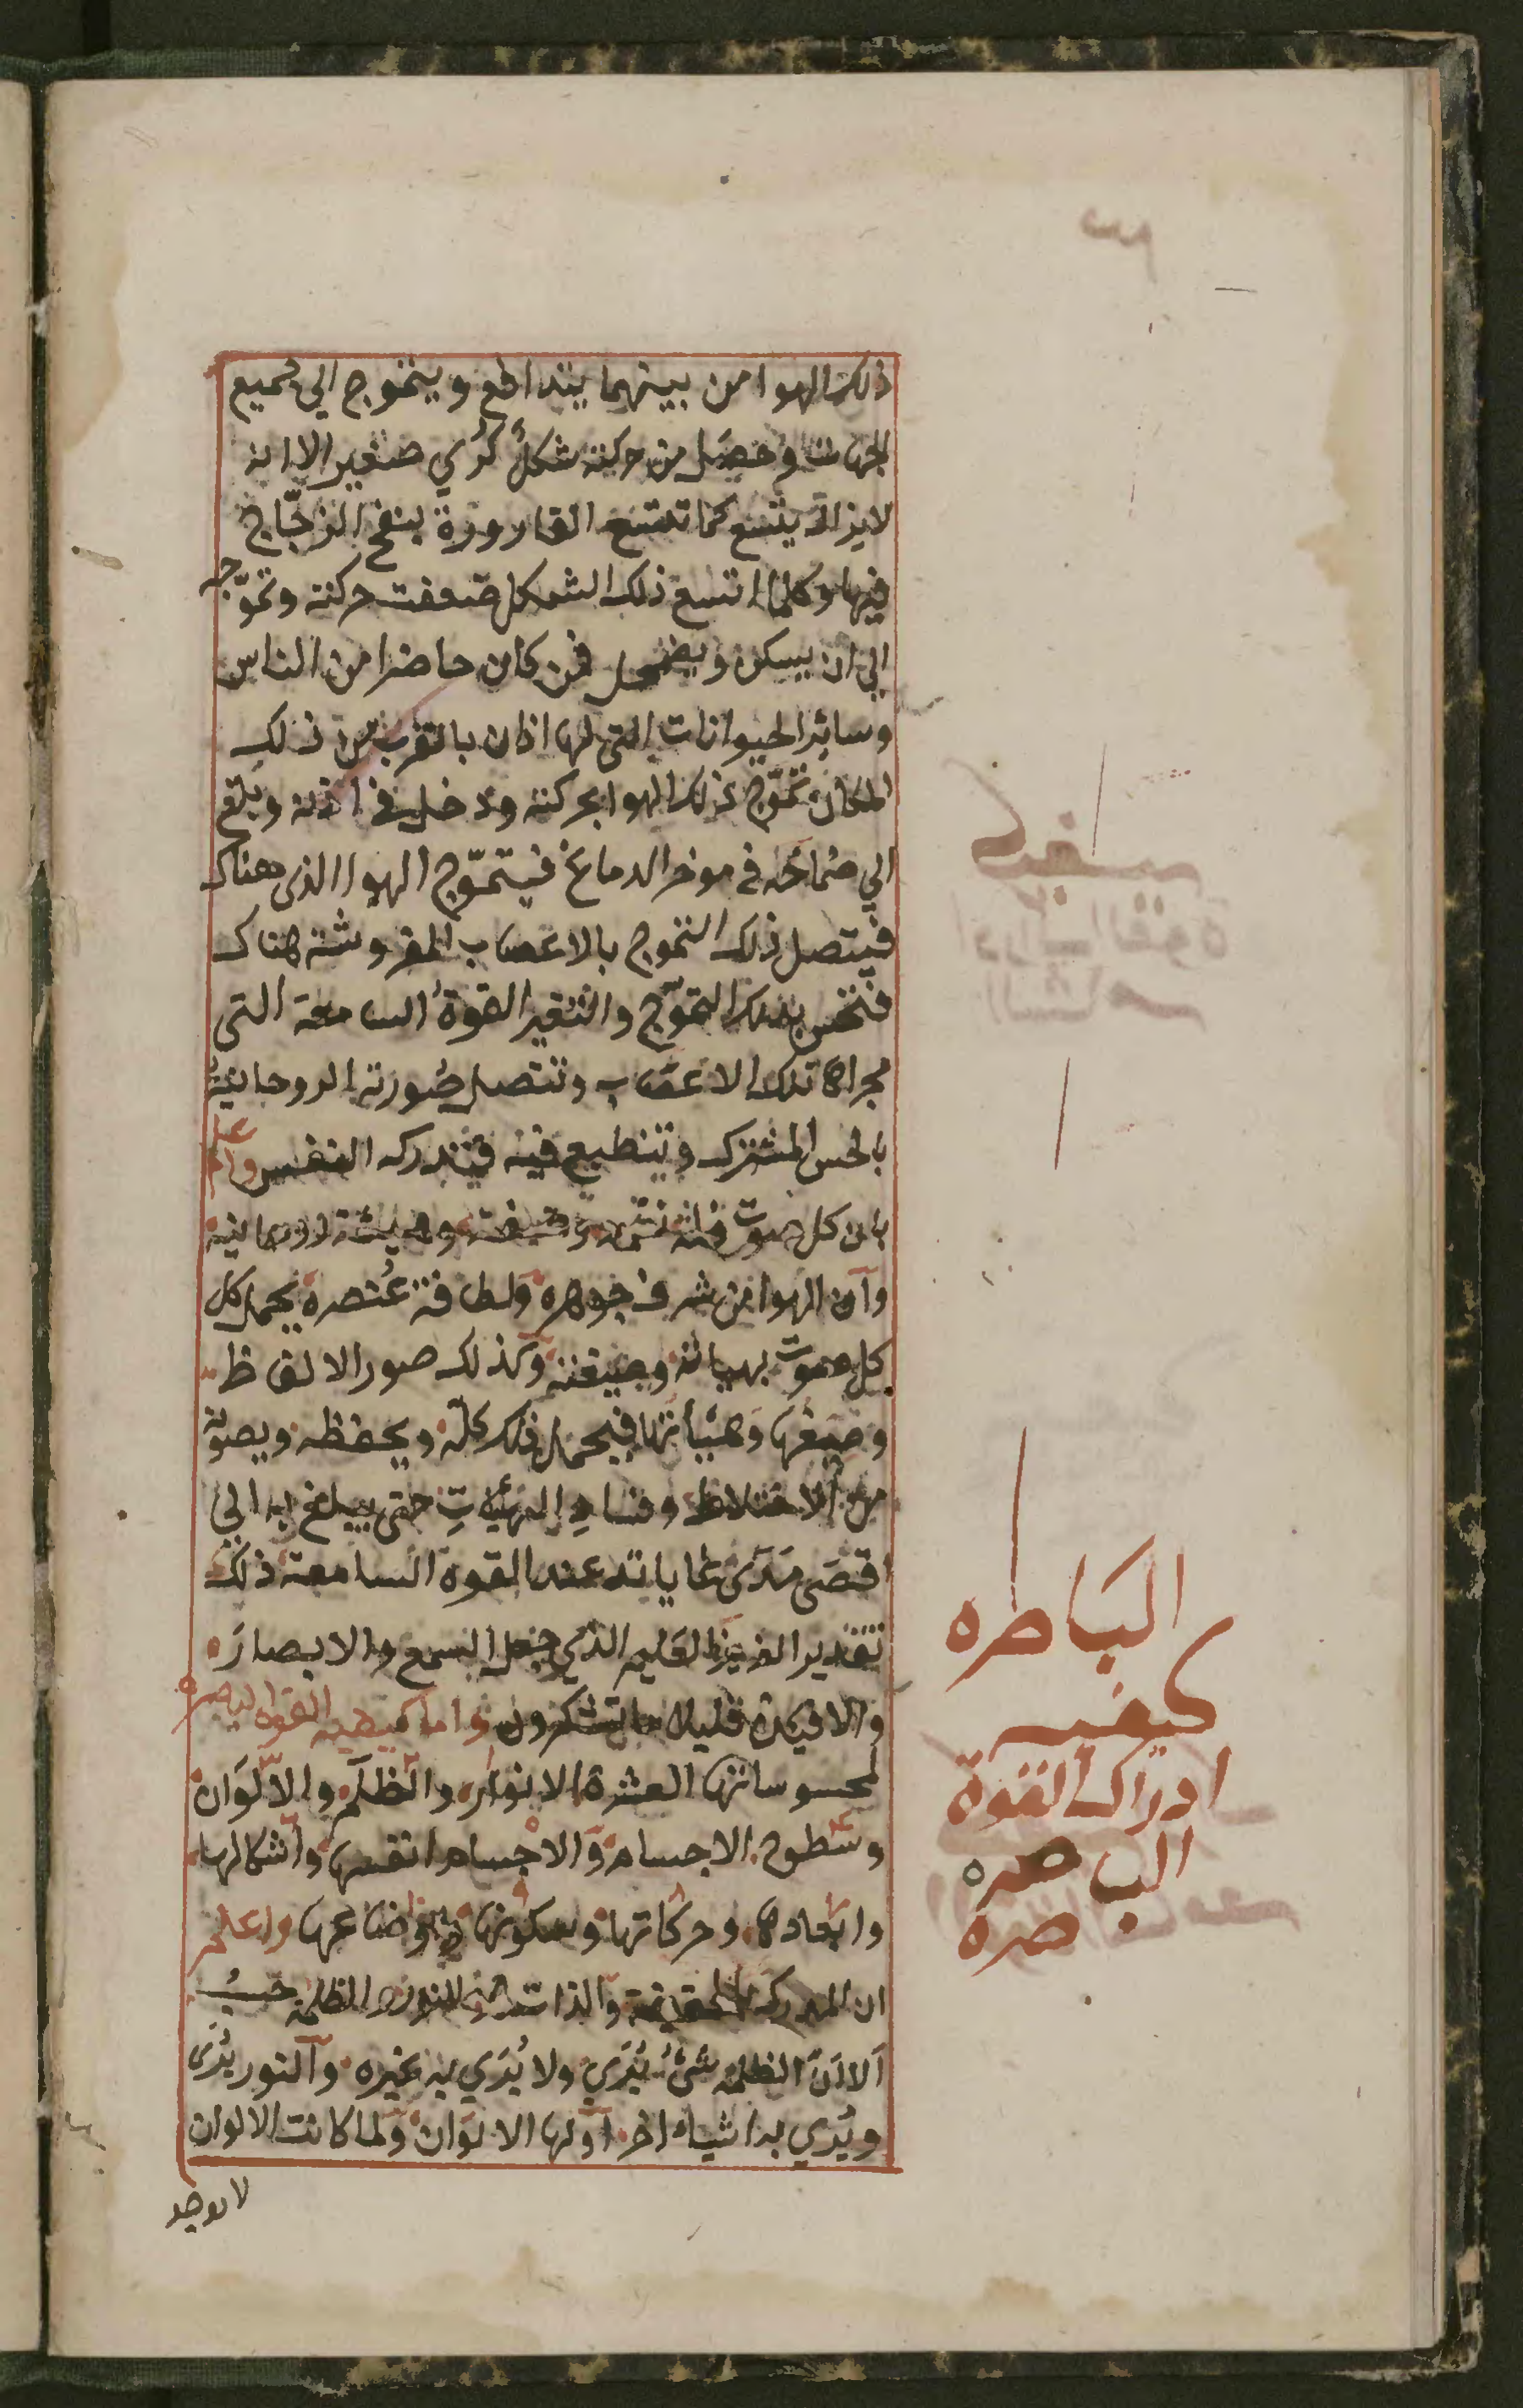 ذلك الهوا من بينهما يتدافع ويتموج الي جميع
الجهات وحصل من حركته شكلٌ كُري صغير الا انه
لا يزال يتسع كما تتسع القارورة بنفخ الزجّاج
فيها وكلما اتسع ذلك الشكل ضعفت حركته وتموّجه
الي ان يسكن ويضمحل فمن كان حاضرا من الناس
وسائر الحيوانات التي لها اذان بالقرب من ذلك
المكان تموّج ذلك الهوا بحركته ودخل في اذنه وبلغ
الي صماخه في موخر الدماغ فيتموّج الهوا الذي هناك
فيتصل ذلك التموج بالاعصاب المفروشة هناك
فتحس بذلك التموّج والتغير القوة السامعة التي
مجراها تلك الاعصاب وتتصل صورته الروحانية
بالحس المشترك وتنطبع فيه فتدركه النفس واعلم
بان كل صوت فله نغمة وصيغة وهيئة روحانية
وان الهوا من شرف جوهره ولطافة عنصره يحمل كل
كل صوت بهياته وصيغته وكذلك صور الالفاظ
وصيغها وهيأتها فيحمل ذلك كله ويحفظه ويصونه
من الاختلاط وفساد الهيئات حتى يبلغ به الي
اقصى مدى غاياته عند القوة السامعة ذلك
تقدير العزيز العليم الذي جعل السمع والابصار
والافئدة قليلا ما تشكرون واما كيفية القوة الباصرة
لمحسوساتها العشرة الانوار والظلم والالوان
وسطوح الاجسام والاجسام انفسها واشكالها
وابعادها وحركاتها وسكونها واوضاعها واعلم
ان المدرك بالحقيقة والذات النور والظلمة حسبُ
الا انّ الظلمة شئ يُرَي ولا يُرَي به غيره والنور يُرَى
ويُري به اشياء اخر اولها الالوان ولما كانت الالوان
لا يوجد
الباطره
كيفية
ادراك القوة
الباصره
صرة